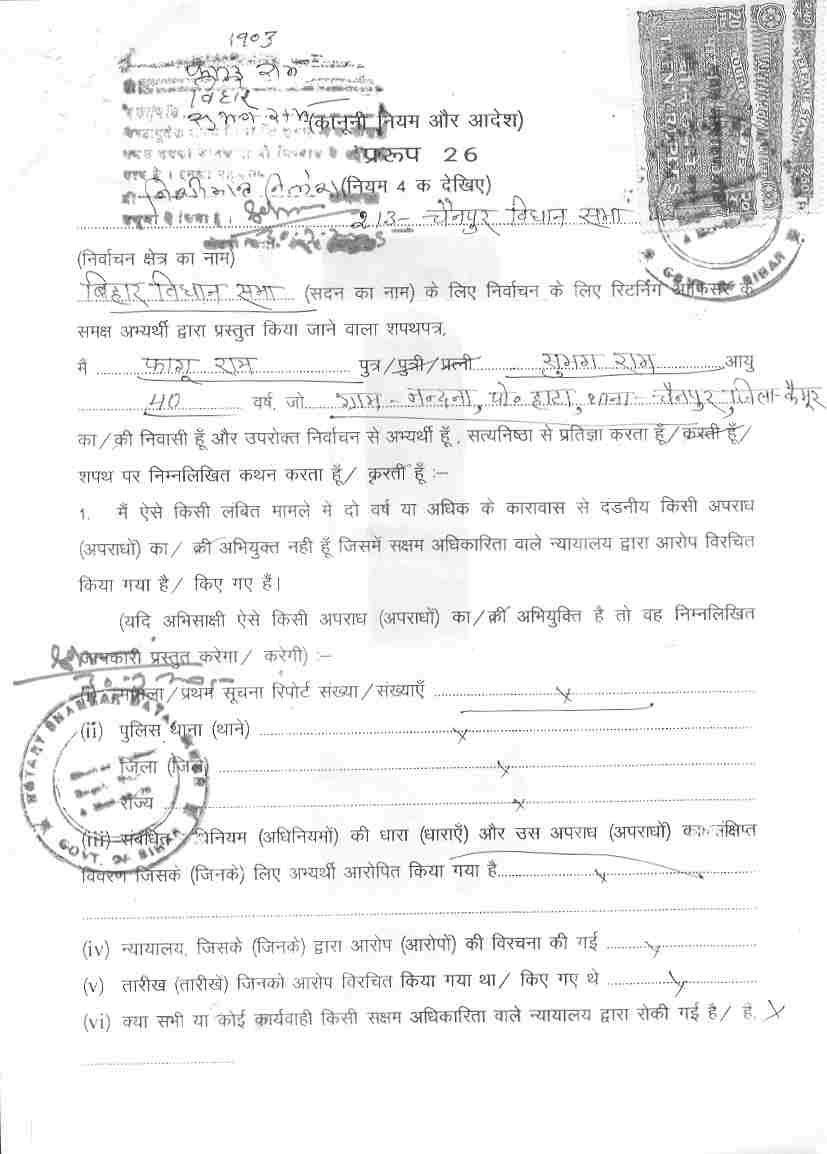 1903
फागू राम
बिहार
सुभग राम (कानूनी नियम और आदेश)
प्ररूप 26
(नियम 4 क देखिए)
213- चैनपुर विधान सभा
(निर्वाचन क्षेत्र का नाम)
बिहार विधान सभा (सदन का नाम) के लिए निर्वाचन के लिए रिटर्निंग ऑफिसर के
समक्ष अभ्यर्थी द्वारा प्रस्तुत किया जाने वाला शपथपत्र,
मै फागू राम पुत्र/पुत्री/प्रत्नी सुभग राम आयु
40 वर्ष, जो ग्राम - नन्दना, पो० हाटा, थाना- चैनपुर, जिला-कैमूर
का/की निवासी हूँ और उपरोक्त निर्वाचन से अभ्यर्थी हूँ , सत्यनिष्ठा से प्रतिज्ञा करता हूँ/करती हूँ/
शपथ पर निम्नलिखित कथन करता हूँ/ करती हूँ :–
1. मैं ऐसे किसी लंबित मामले मे दो वर्ष या अधिक के कारावास से दडनीय किसी अपराध
(अपराधों) का/ की अभियुक्त नही हूँ जिसमें सक्षम अधिकारिता वाले न्यायालय द्वारा आरोप विरचित
किया गया है/ किए गए हैं।
(यदि अभिसाक्षी ऐसे किसी अपराध (अपराधों) का/की अभियुक्ति है तो वह निम्नलिखित
जानकारी प्रस्तुत करेगा/ करेगी) :–
(i) मामला/प्रथम सूचना रिपोर्ट संख्या/संख्याएँ x
(ii) पुलिस थाना (थाने) x
जिला (जिले) x
राज्य x
(iii) संबंधित अधिनियम (अधिनियमों) की धारा (धाराएँ) और उस अपराध (अपराधों) का संक्षिप्त
विवरण जिसके (जिनके) लिए अभ्यर्थी आरोपित किया गया है x
(iv) न्यायालय, जिसके (जिनके) द्वारा आरोप (आरोपों) की विरचना की गई x
(v) तारीख (तारीखें) जिनको आरोप विरचित किया गया था/ किए गए थे x
(vi) क्या सभी या कोई कार्यवाही किसी सक्षम अधिकारिता वाले न्यायालय द्वारा रोकी गई है/ है, x
NOTARY
GOVT. OF BIHAR
GOVT. OF BIHAR
TWENTY RUPEES